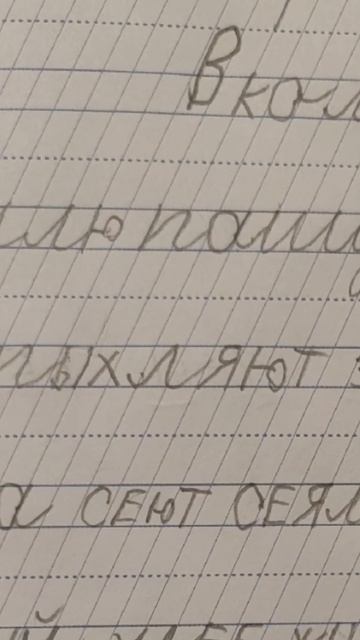 В кол
млю паш
рыхляют з
а сеют сеял